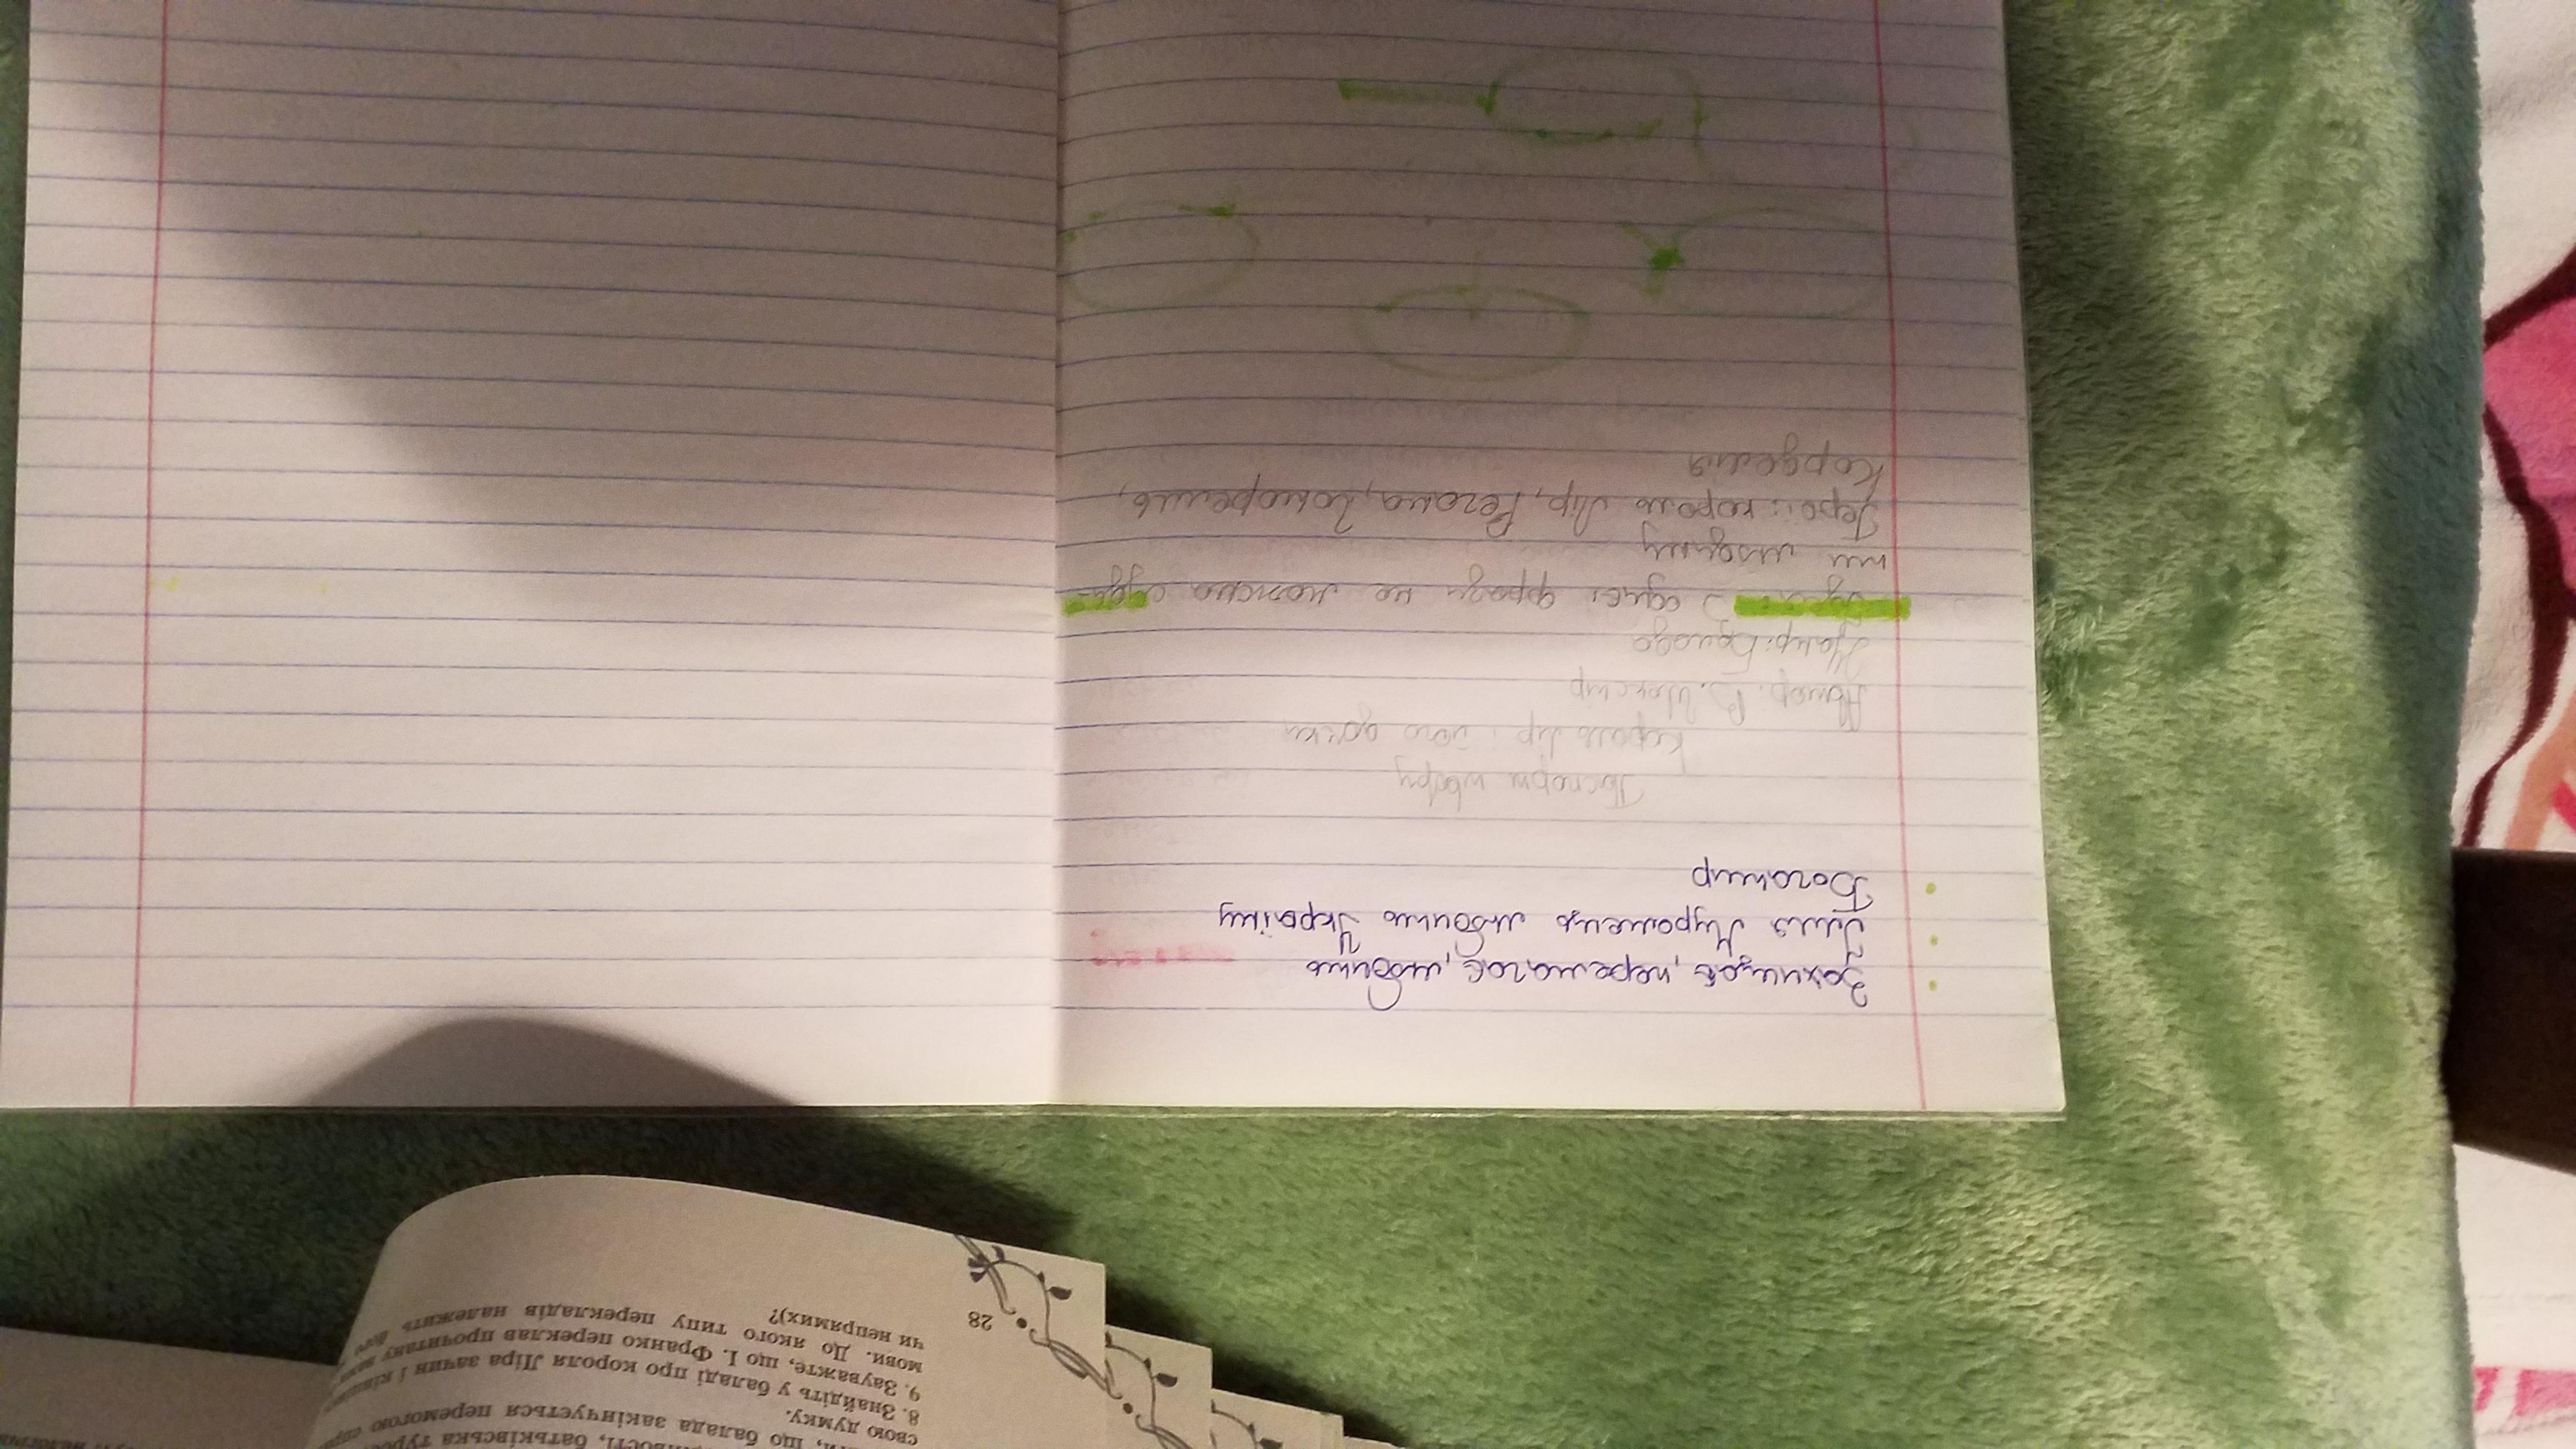 Захищає, перемагає, любить
Ілля Муромець любить Україну
Богатир
Паспорт твору
Король Лір і його дочки
Автор: В. Шекспір
Жанр: Балада
Ідея: З однієї фрази не можна суди-
ти людину
Герої: король Лір, Регана, Гонорелья,
Корделія
що балада закінчується перемогою
свою думку.
8. Знайдіть у баладі про короля Ліра зачин і
9. Зауважте, що І. Франко переклав прочитану вами
мови. До якого типу перекладів належить його
чи непрямих)?
28